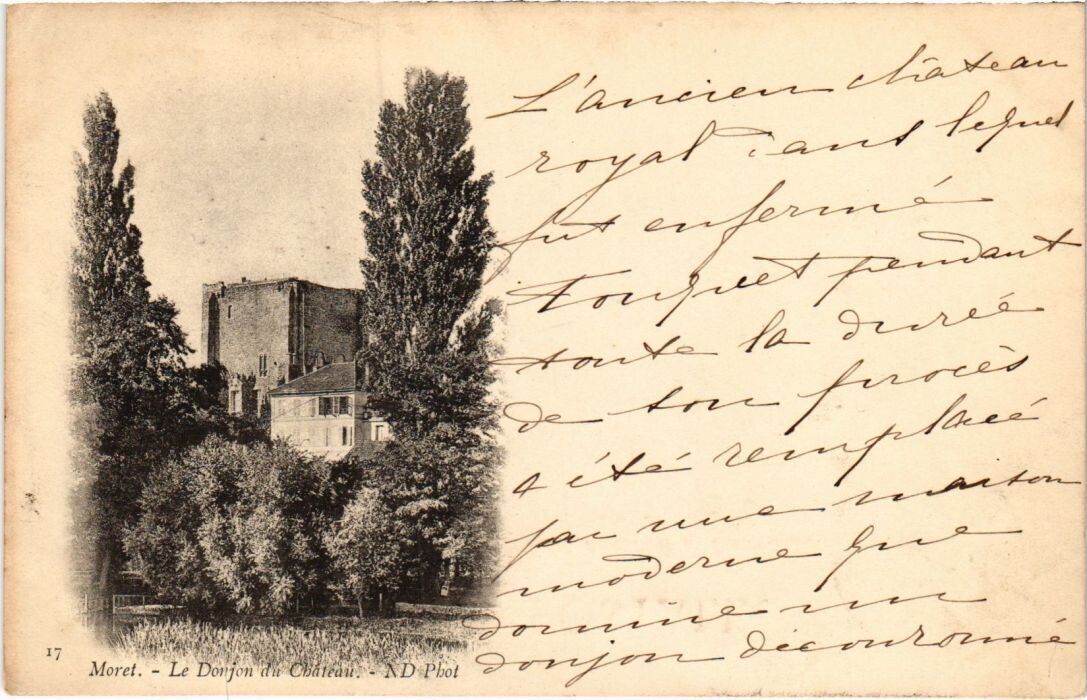 L'ancien château
royal dans lequel
fut enfermé
Fouquet pendant
toute la durée
de son procès
a été remplacé
par une maison
moderne que
domine un
donjon découronné
17
Moret. - Le Donjon du Château. - ND Phot